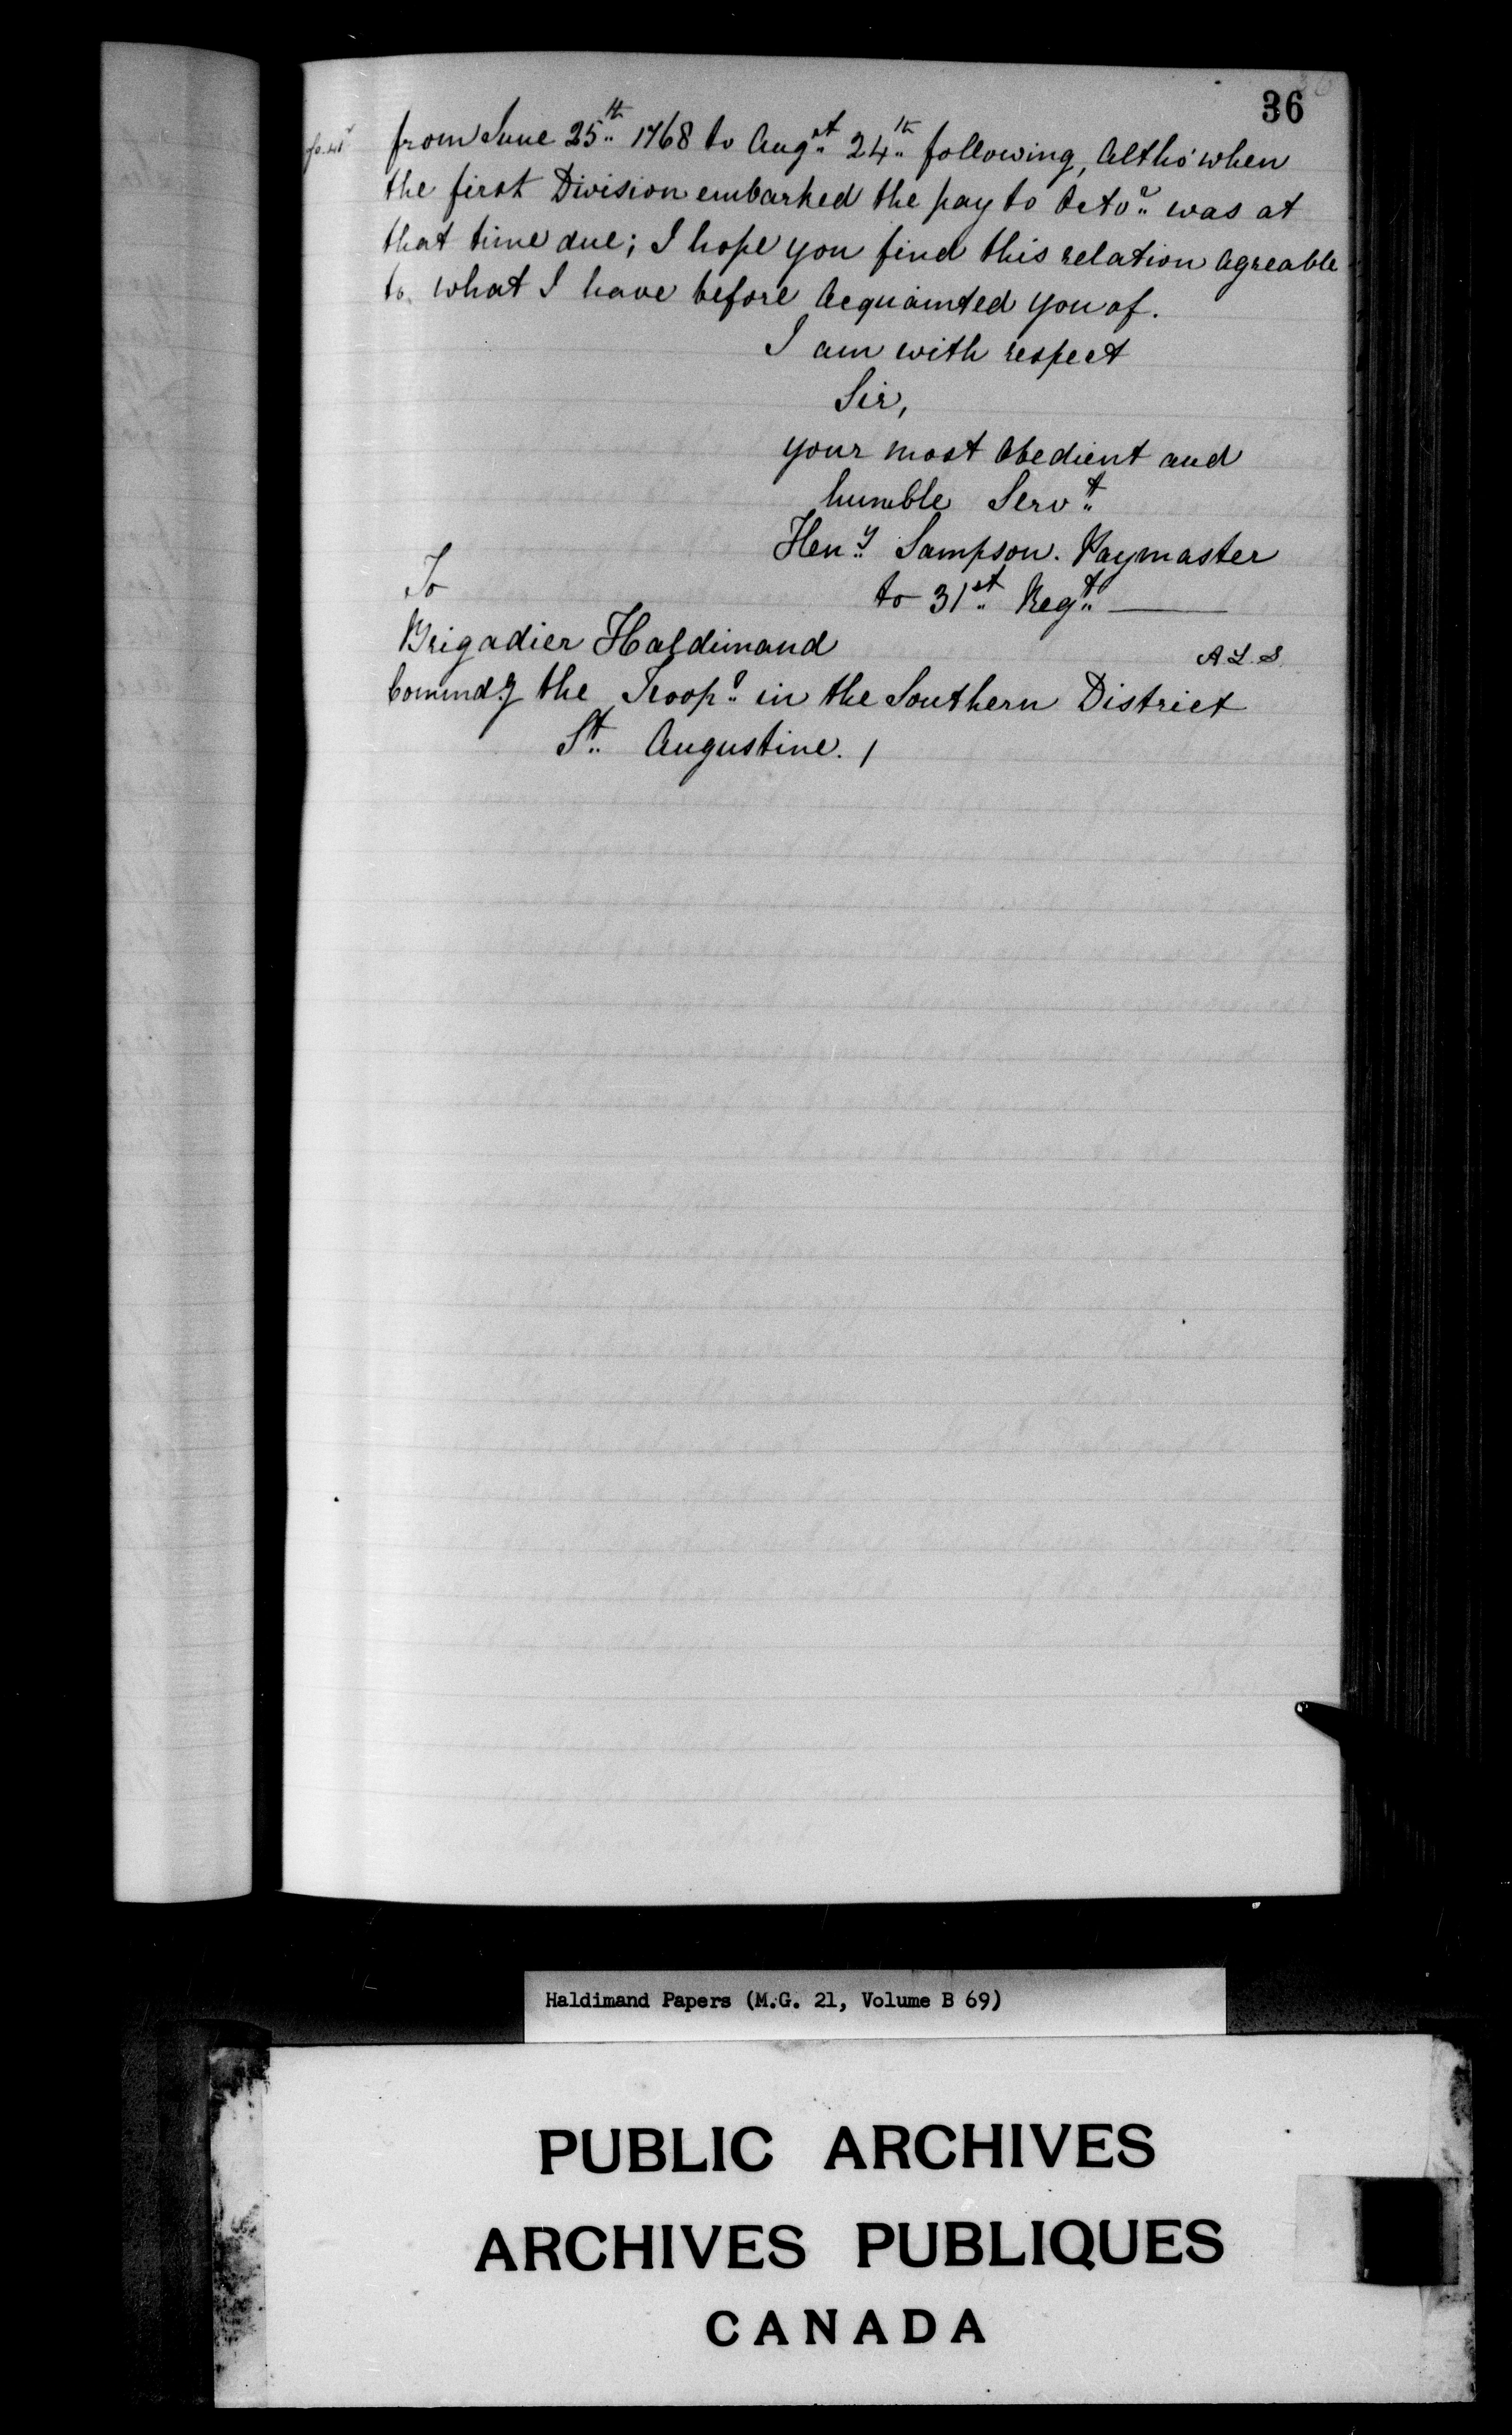 36
from June 25th 1768 to Augst 24th following, Altho' when
the first Division embarked the pay to Octor was at
that time due; I hope you find this relation Agreable
to what I have before Acquainted you of.
I am with respect
Sir,
your most Obedient and
humble Servt
Heny Sampson. Paymaster
to 31st Regt
To
Brigadier Haldimand
A.L.S.
Commdg the Troops in the Southern District
St Augustine. /
Haldimand Papers (M.G. 21, Volume B 69)
PUBLIC ARCHIVES
ARCHIVES PUBLIQUES
CANADA